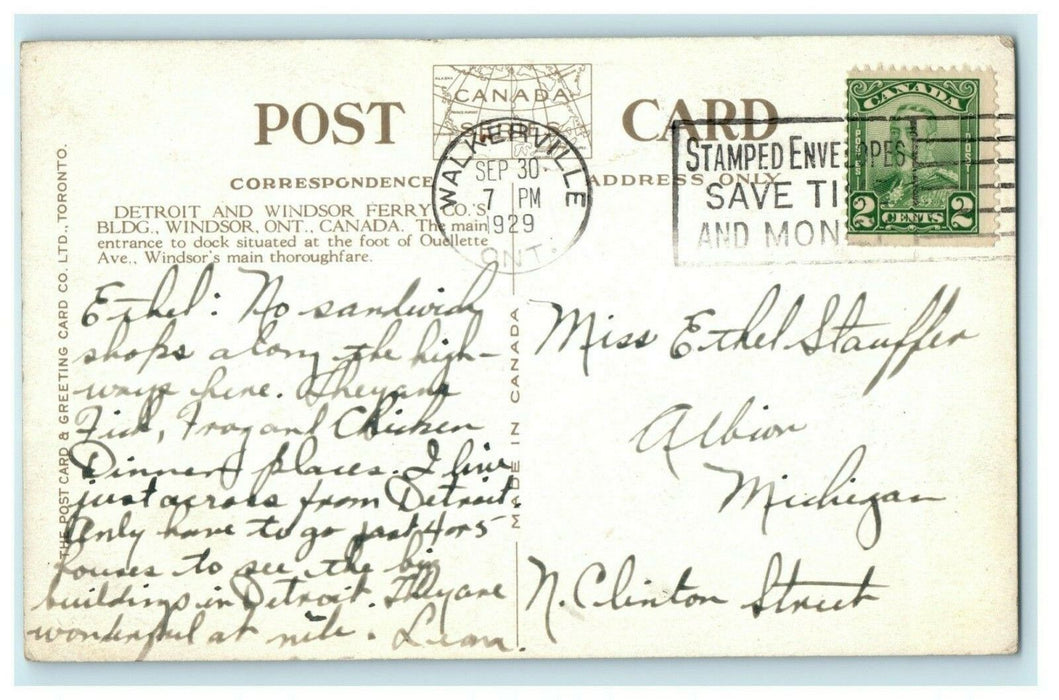 POST CARD
CANADA
CORRESPONDENCE
ADDRESS ONLY
WALKERVILLE
SEP 30
7 PM
1929
ONT.
STAMPED ENVELOPES
SAVE TI
AND MON
CANADA
POSTES
POST
2 CENTS 2
DETROIT AND WINDSOR FERRY CO.'S
BLDG., WINDSOR, ONT., CANADA. The main
entrance to dock situated at the foot of Ouellette
Ave., Windsor's main thoroughfare.
Ethel: No sandwich
shops along the high-
ways here. They are
Fish, Frog and Chicken
Dinner places. I live
just across from Detroit
Only have to go past 4 or 5
houses to see the big
buildings in Detroit. They are
wonderful at nite.
THE POST CARD & GREETING CARD CO. LTD., TORONTO.
MADE IN CANADA
Miss Ethel Stauffer
Albion
Michigan
N. Clinton Street